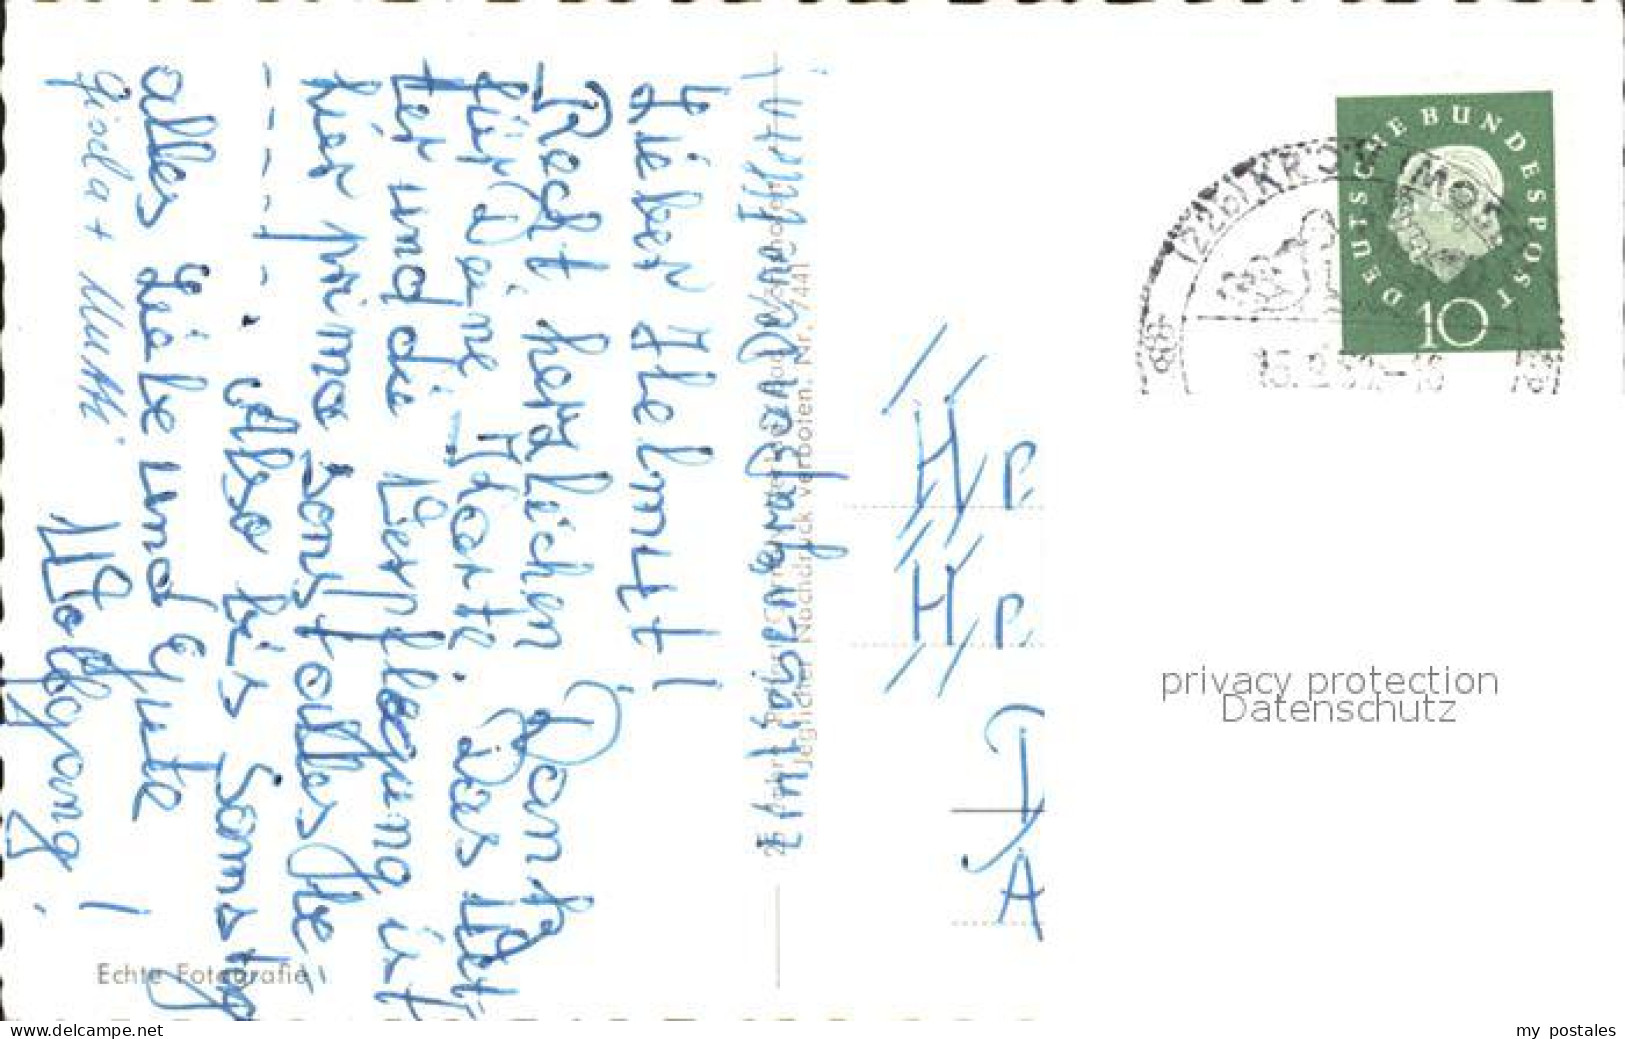 Lieber Helmut!
Recht herzlichen Dank
für Deine Karte. Das Wet
ter und die Verpflegung ist
hier prima sonst alles
Also bis Samstag
alles Liebe und Gute
Wolfgang!
Gisela + Mutti
Echte Fotografie
Jeglicher Nachdruck verboten. Nr. 7441
H P.
H P.
A
DEUTSCHE BUNDESPOST
10
(22b) KRÖV (MOSEL)
privacy protection
Datenschutz
www.delcampe.net
my postales